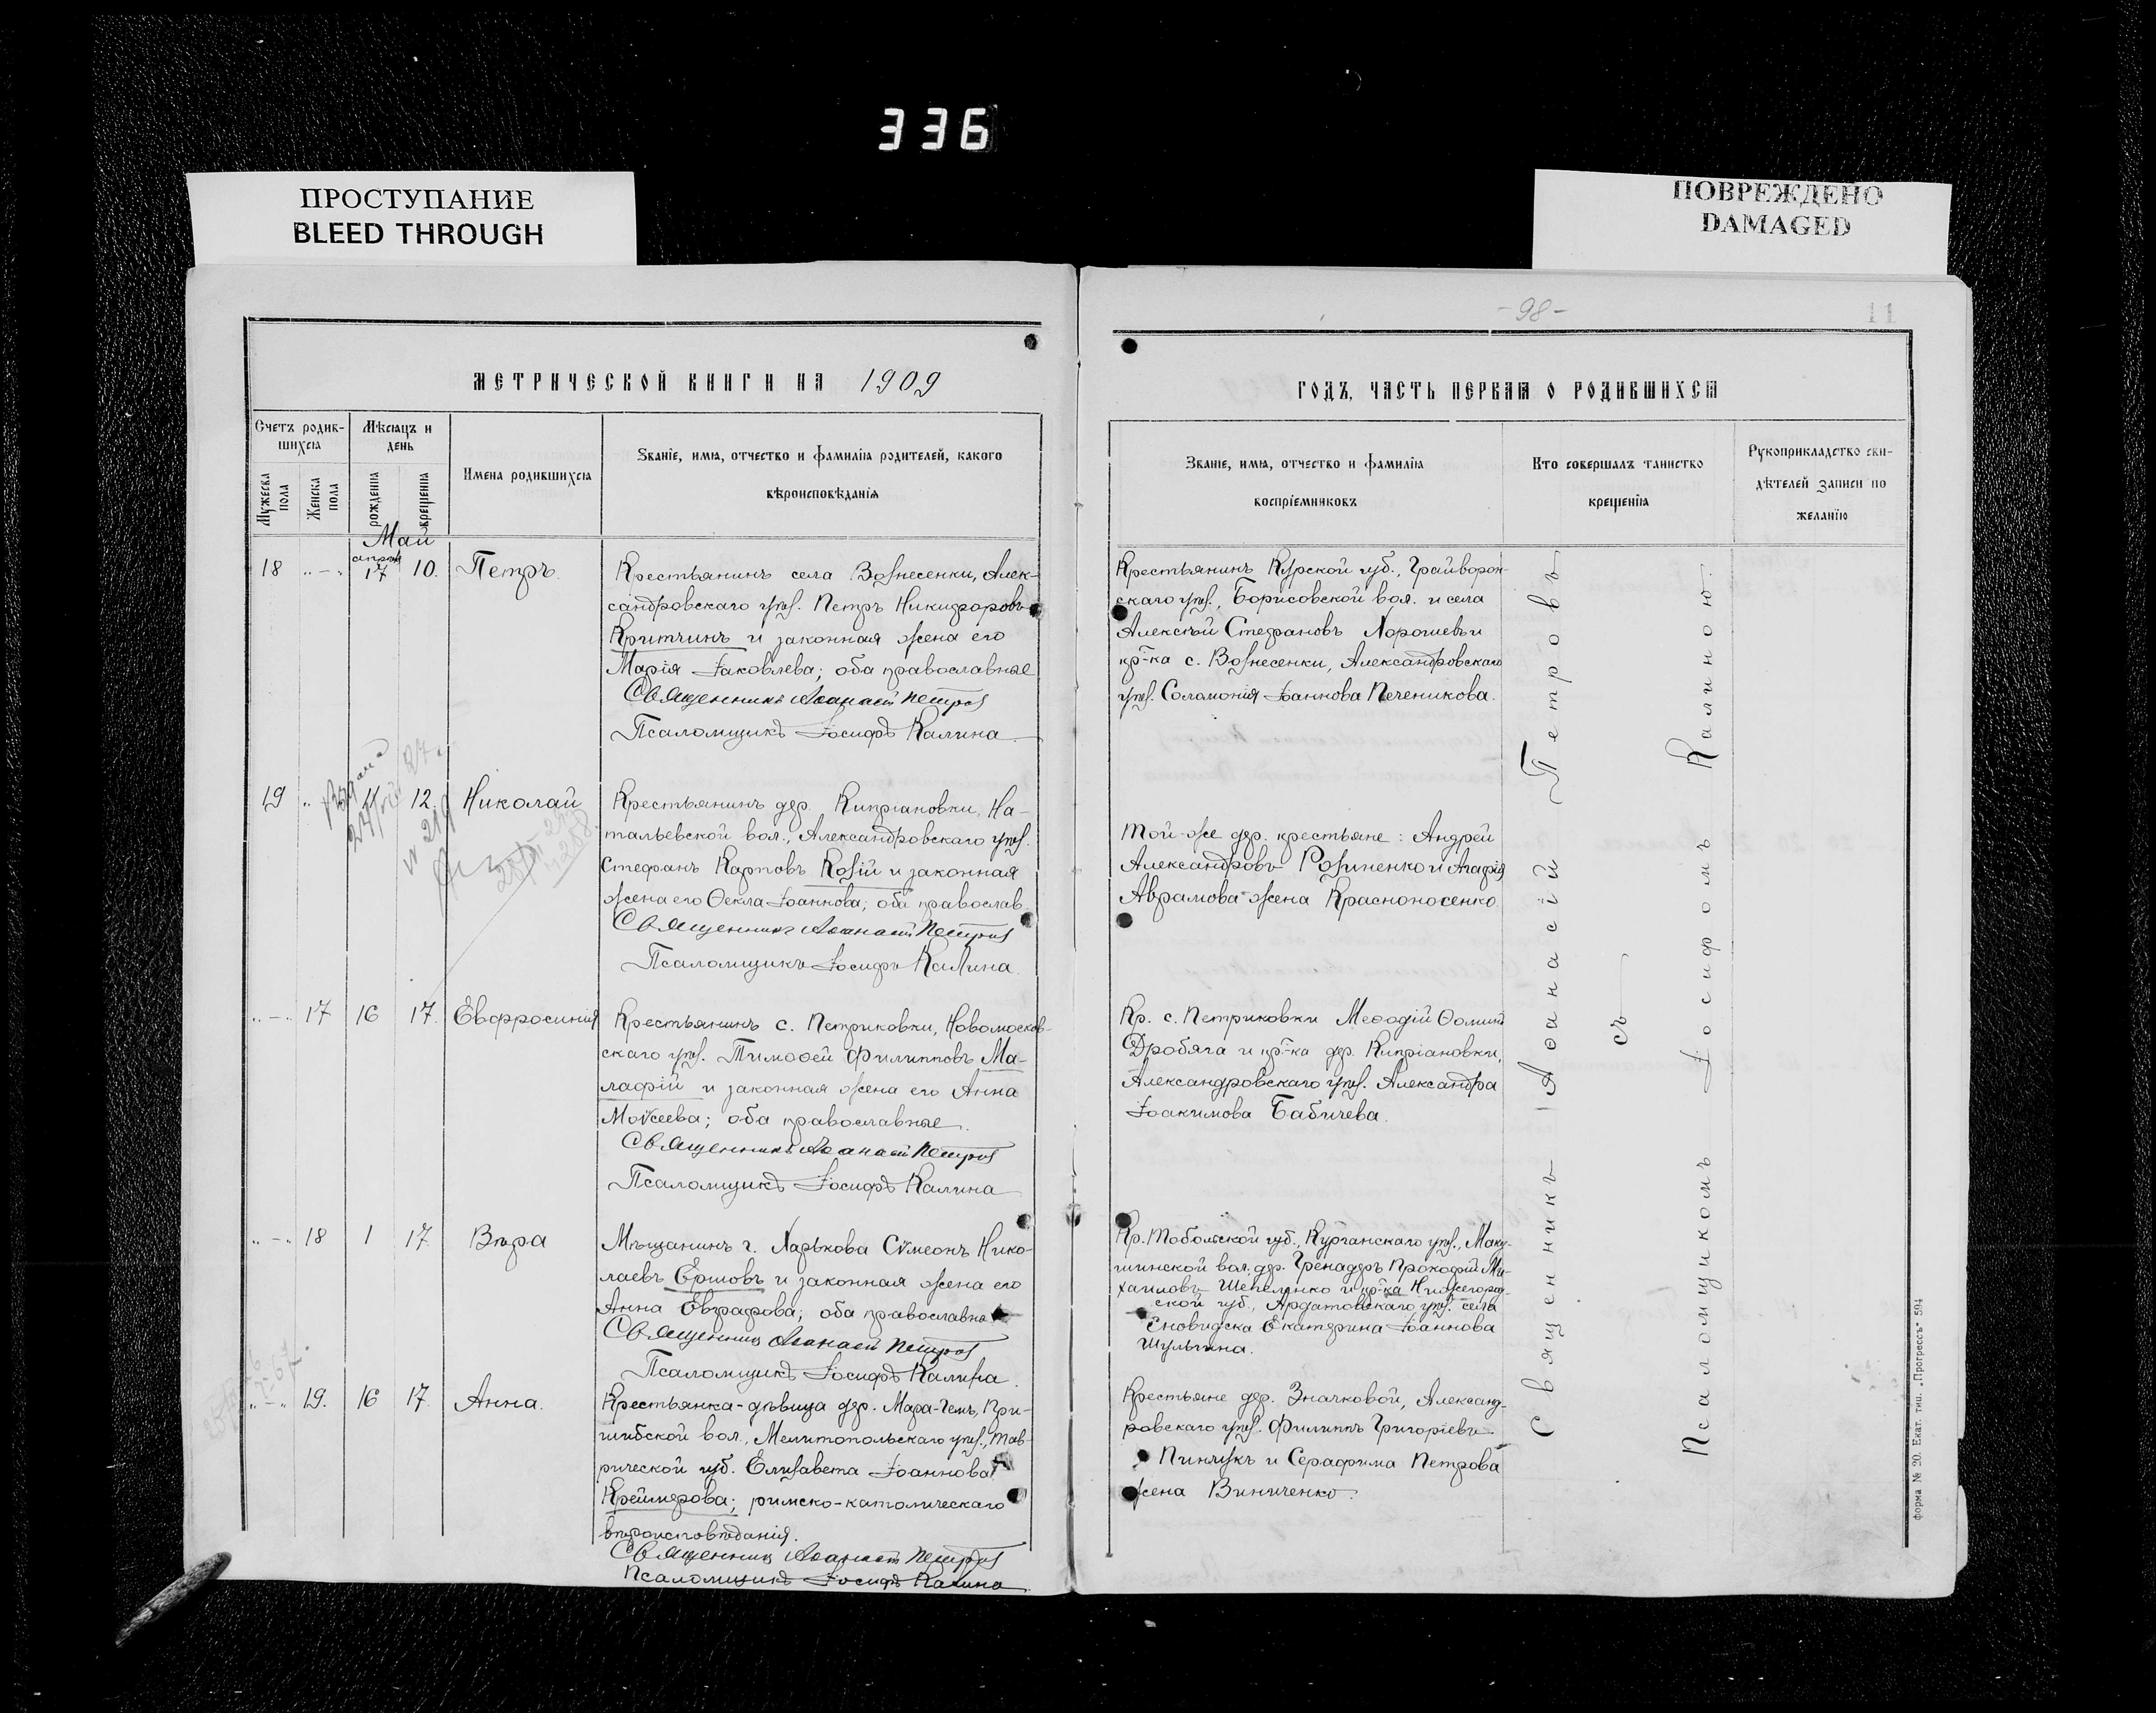 336
ПРОСТУПАНИЕ
BLEED THROUGH
ПОВРЕЖДЕНО
DAMAGED
МЕТРИЧЕСКОЙ КНИГИ НА 1909
Счетъ родив-
шихся
Мѣсяцъ и
день
Мужеска
пола
Женска
пола
рожденія
крещенія
Имена родившихся
Званіе, имя, отчество и фамилія родителей, какого
вѣроисповѣданія
Май
18 „—„ апрѣля 17 10. Петръ.
Крестьянинъ села Вознесенки, Алек-
сандровскаго уѣз. Петръ Никифоровъ
Критчинъ и законная жена его
Марія Іаковлева; оба православные
Священникъ Аѳанасій Петровъ
Псаломщикъ Іосифъ Калина.
19 „ 11 12. Николай
Крестьянинъ дер. Кипріановки, На-
тальевской вол., Александровскаго уѣз.
Стефанъ Карповъ Козій и законная
жена его Ѳекла Іоаннова; оба православ.
Священникъ Аѳанасій Петровъ
Псаломщикъ Іосифъ Калина.
„—„ 17 16 17. Евфросинія
Крестьянинъ с. Петриковки, Новомосков-
скаго уѣз. Тимоѳей Филипповъ Ма-
лафій и законная жена его Анна
Моѵсеева; оба православные.
Священникъ Аѳанасій Петровъ
Псаломщикъ Іосифъ Калина
„—„ 18 1 17. Вѣра
Мѣщанинъ г. Харькова Сѵмеонъ Нико-
лаевъ Ершовъ и законная жена его
Анна Евграфова; оба православные
Священникъ Аѳанасій Петровъ
Псаломщикъ Іосифъ Калина.
„—„ 19. 16 17. Анна.
Крестьянка-дѣвица дер. Мара-Чемъ, При-
шибской вол., Мелитопольскаго уѣз., Тав-
рической губ. Елизавета Іоаннова
Креймерова; римско-католическаго
вѣроисповѣданія.
Священникъ Аѳанасій Петровъ
Псаломщикъ Іосифъ Калина.
-98-
11
ГОДЪ, ЧАСТЬ ПЕРВАЯ О РОДИВШИХСЯ
Званіе, имя, отчество и фамилія
воспріемниковъ
Кто совершалъ таинство
крещенія
Рукоприкладство сви-
дѣтелей записи по
желанію
Крестьянинъ Курской губ., Грайворон-
скаго уѣз., Борисовской вол. и села
Алексѣй Стефановъ Хорошевъ и
кр-ка с. Вознесенки, Александровскаго
уѣз. Соломонія Іоаннова Печеникова.
Той-же дер. крестьяне: Андрей
Александровъ Розиненко и Агафія
Аврамова жена Красноносенко.
Кр. с. Петриковки Меѳодій Ѳоминъ
Дробяга и кр-ка дер. Кипріановки,
Александровскаго уѣз. Александра
Іоакимова Бабичева.
Кр. Тобольской губ., Курганскаго уѣз., Маку-
шинской вол. дер. Гренадеръ Прокофій Ми-
хаиловъ Шепеленко и кр-ка Нижегород-
ской губ., Ардатовскаго уѣз. села
Еновидска Екатерина Іоаннова
Шульгина.
Крестьяне дер. Значковой, Александ-
ровскаго уѣз. Филиппъ Григоріевъ
Пинчукъ и Серафима Петрова
жена Виниченко.
Священникъ Аѳанасій Петровъ
съ
Псаломщикомъ Іосифомъ Калиною.
Форма № 20. Екат. тип. „Прогрессъ“ 594